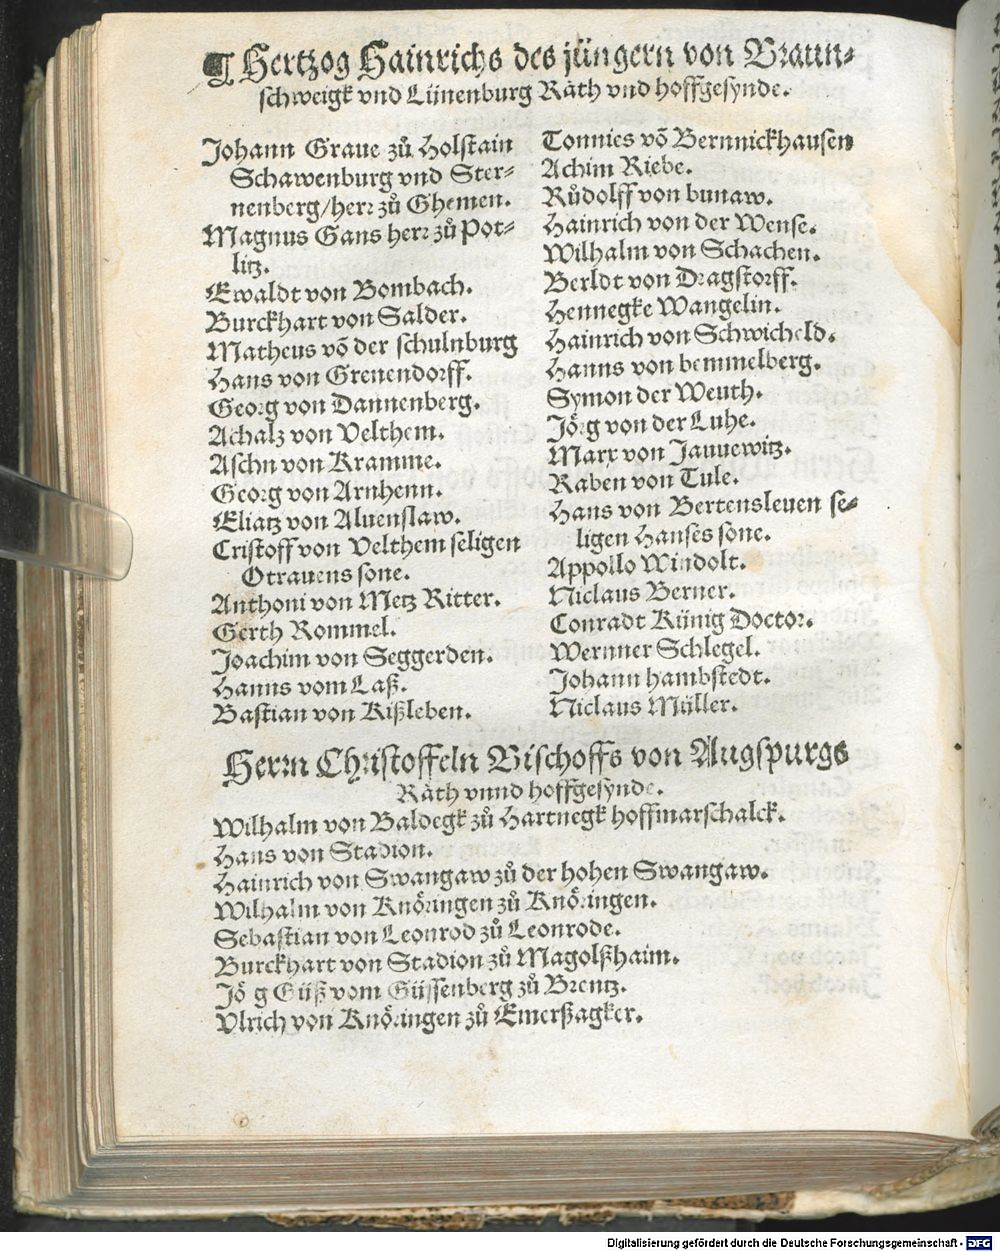 ¶ Hertzog Hainrichs des jüngern von Braun⸗
schweigk vnd Lünenburg Räth vnd hoffgesynde.
Johann Graue zů Holstain
Schawenburg vnd Ster⸗
nenberg/herr zů Ghemen.
Magnus Gans herr zů Pot⸗
litz.
Ewaldt von Bombach.
Burckhart von Salder.
Matheus võ der schulnburg
Hans von Greuendorff.
Georg von Dannenberg.
Achatz von Velthem.
Aschn von Kramme.
Georg von Arnhenn.
Eliatz von Aluenslaw.
Cristoff von Velthem seligen
Otrauens sone.
Anthoni von Metz Ritter.
Gerth Rommel.
Joachim von Seggerden.
Hanns vom Laß.
Bastian von Kißleben.
Tonnies võ Bernnickhausen
Achim Riebe.
Růdolff von bunaw.
Hainrich von der Wense.
Wilhalm von Schachen.
Berldt von Dragstorff.
Hennegke Wangelin.
Hainrich von Schwicheld.
Hanns von bemmelberg.
Symon der Weuth.
Jörg von der Luhe.
Marx von Jannewitz.
Raben von Tule.
Hans von Bertensleuen se⸗
ligen Hanses sone.
Appollo Windolt.
Niclaus Berner.
Conradt Künig Doctor.
Wernner Schlegel.
Johann hambstedt.
Niclaus Müller.
Herrn Christoffeln Bischoffs von Augspurgs
Räth vnnd hoffgesynde.
Wilhalm von Baldegk zů Hartnegk hoffmarschalck.
Hans von Stadion.
Hainrich von Swangaw zů der hohen Swangaw.
Wilhalm von Knöringen zů Knöringen.
Sebastian von Leonrod zů Leonrode.
Burckhart von Stadion zů Magolßhaim.
Jörg Güß vom Güssenberg zů Brentz.
Vlrich von Knöringen zů Emerßagker.
Digitalisierung gefördert durch die Deutsche Forschungsgemeinschaft - DFG